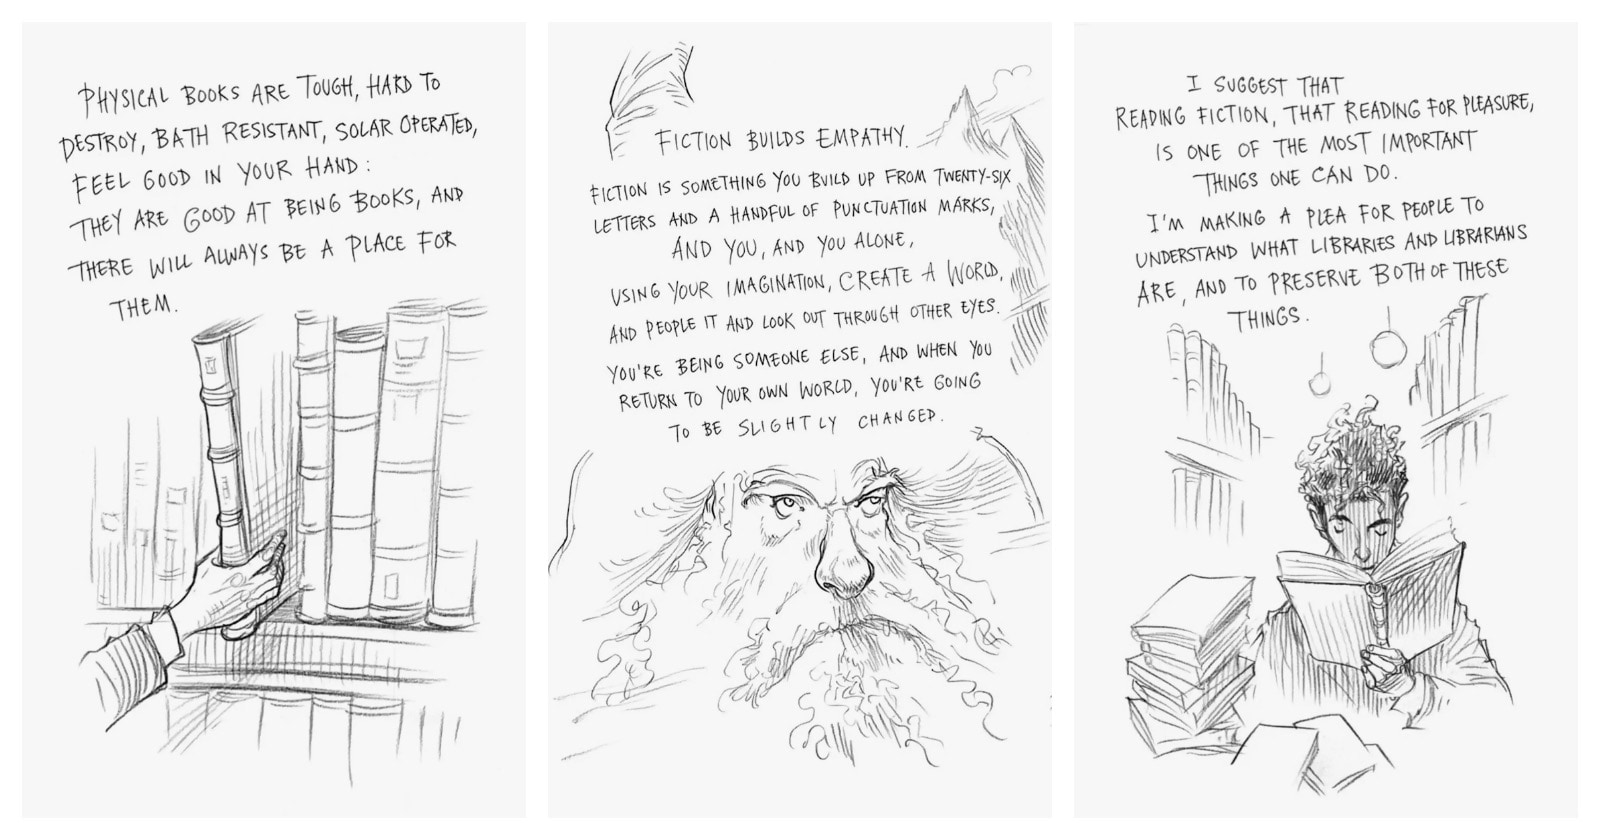 PHYSICAL BOOKS ARE TOUGH, HARD TO
DESTROY, BATH RESISTANT, SOLAR OPERATED,
FEEL GOOD IN YOUR HAND:
THEY ARE GOOD AT BEING BOOKS, AND
THERE WILL ALWAYS BE A PLACE FOR
THEM.
FICTION BUILDS EMPATHY.
FICTION IS SOMETHING YOU BUILD UP FROM TWENTY-SIX
LETTERS AND A HANDFUL OF PUNCTUATION MARKS,
AND YOU, AND YOU ALONE,
USING YOUR IMAGINATION, CREATE A WORLD,
AND PEOPLE IT AND LOOK OUT THROUGH OTHER EYES.
YOU'RE BEING SOMEONE ELSE, AND WHEN YOU
RETURN TO YOUR OWN WORLD, YOU'RE GOING
TO BE SLIGHTLY CHANGED.
I SUGGEST THAT
READING FICTION, THAT READING FOR PLEASURE,
IS ONE OF THE MOST IMPORTANT
THINGS ONE CAN DO.
I'M MAKING A PLEA FOR PEOPLE TO
UNDERSTAND WHAT LIBRARIES AND LIBRARIANS
ARE, AND TO PRESERVE BOTH OF THESE
THINGS.